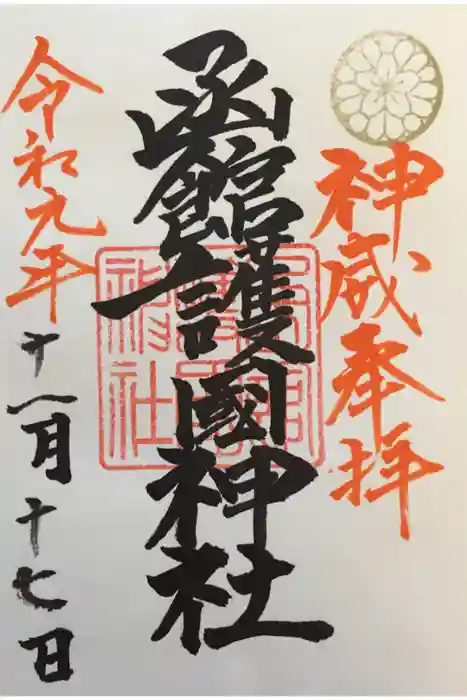 神威奉拝
函館護國神社
令和元年
十一月十七日